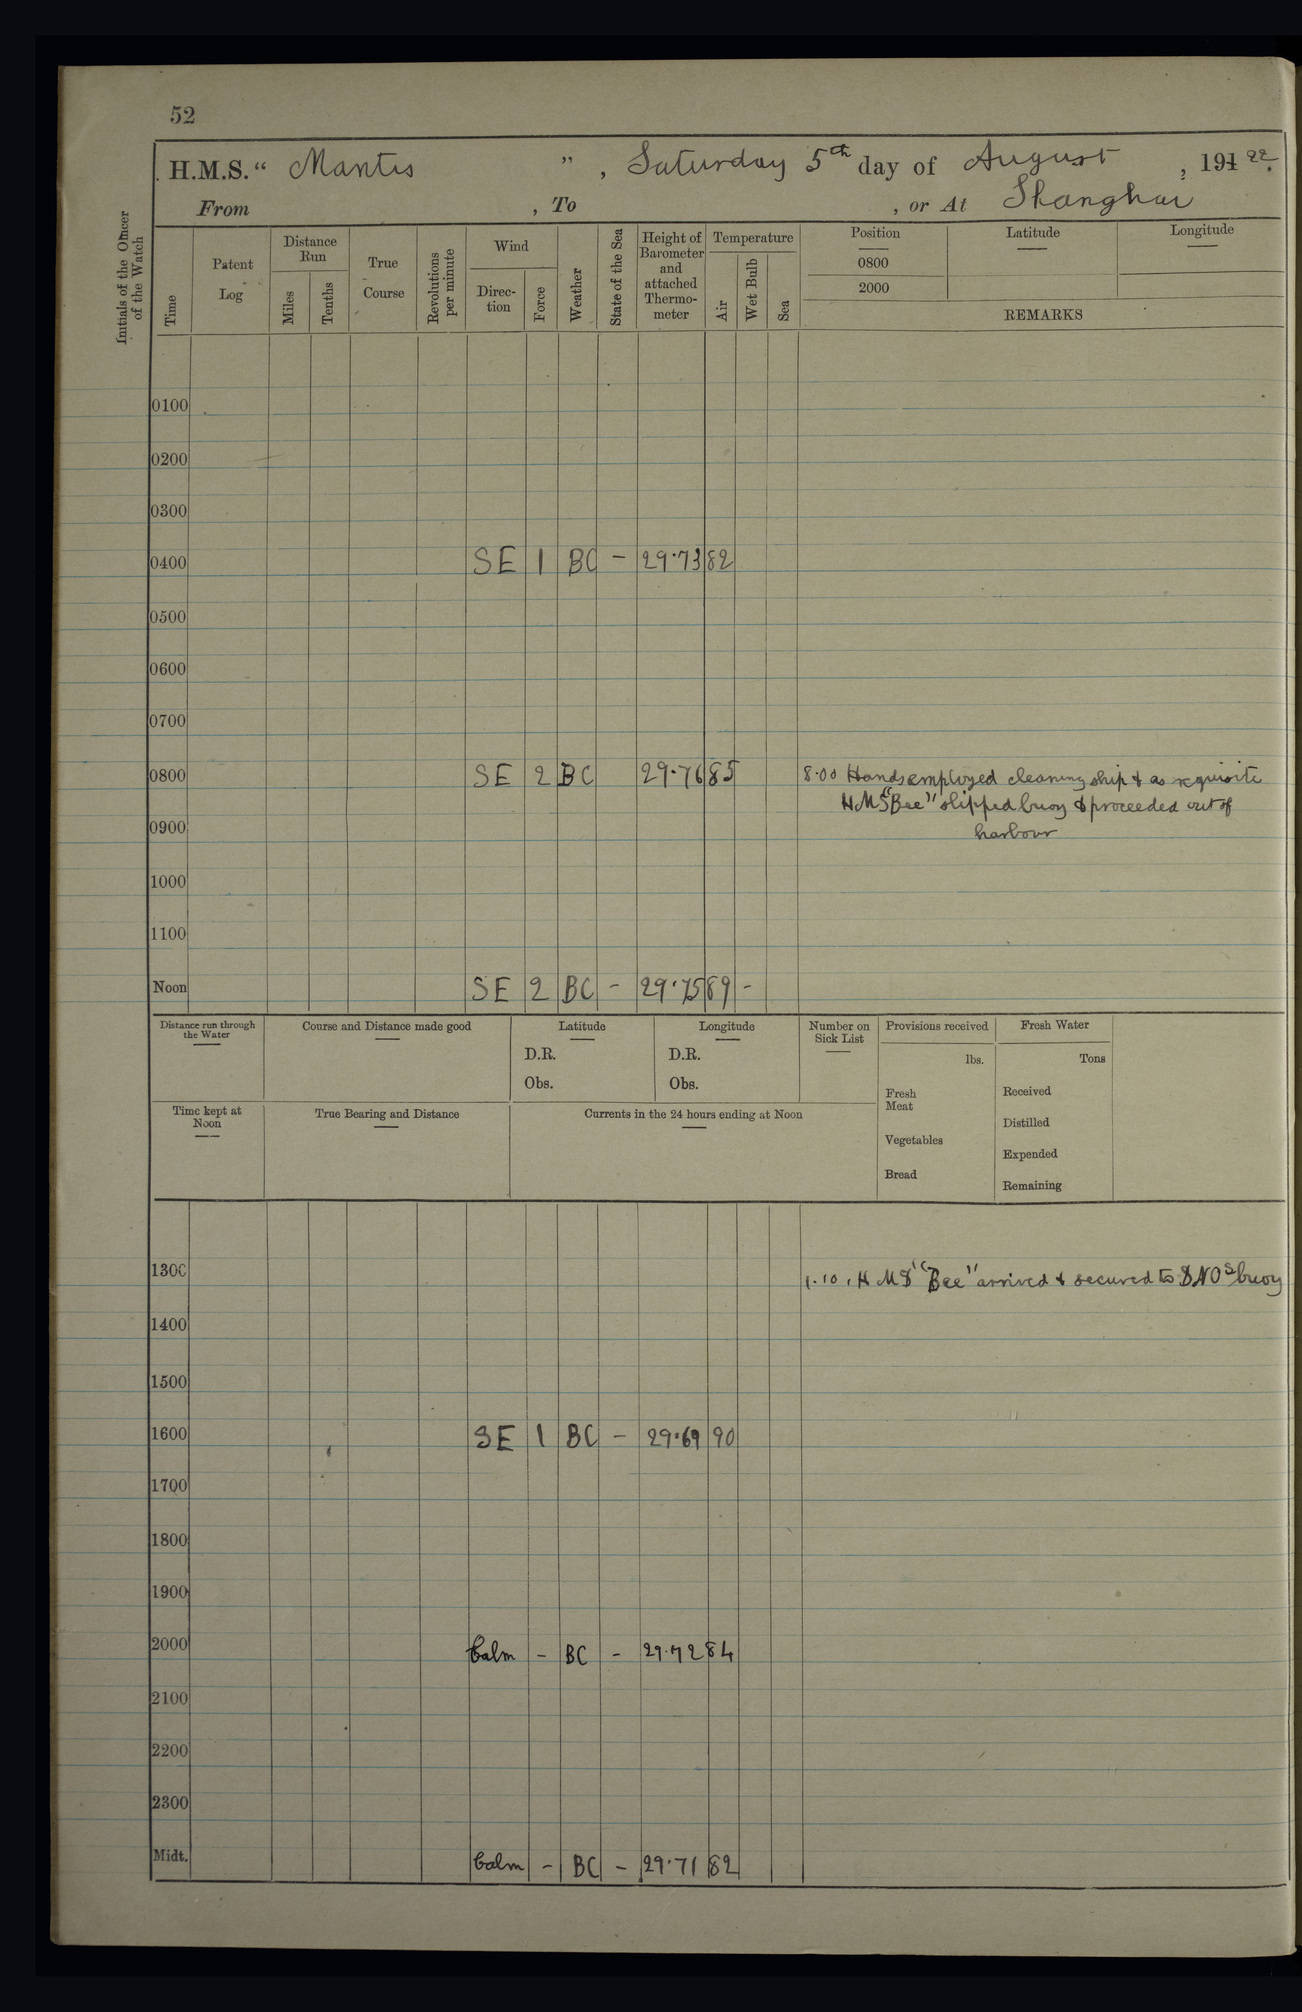 52
H.M.S. “ Mantis ” , Saturday 5th day of August , 191 22.
From , To , or At Shanghai
Initials of the Officer of the Watch
Time
Patent Log
Distance Run
Miles
Tenths
True Course
Revolutions per minute
Wind
Direc-tion
Force
Weather
State of the Sea
Height of Barometer and attached Thermo-meter
Temperature
Air
Wet Bulb
Sea
Position
0800
2000
Latitude
Longitude
REMARKS
0100
0200
0300
0400 SE 1 BC - 29.73 82
0500
0600
0700
0800 SE 2 BC 29.76 85 8.00 Hands employed cleaning ship & as requisite
HMS "Bee" slipped buoy & proceeded out of
0900 harbour
1000
1100
Noon SE 2 BC - 29.75 89 -
Distance run through the Water
Course and Distance made good
Latitude
D.R.
Obs.
Longitude
D.R.
Obs.
Number on Sick List
Provisions received
lbs.
Fresh Meat
Vegetables
Bread
Fresh Water
Tons
Received
Distilled
Expended
Remaining
Time kept at Noon
True Bearing and Distance
Currents in the 24 hours ending at Noon
1300 1.10. HMS "Bee" arrived & secured to SNOs buoy
1400
1500
1600 SE 1 BC - 29.69 90
1700
1800
1900
2000 Calm - BC - 29.72 84
2100
2200
2300
Midt. Calm - BC - 29.71 82